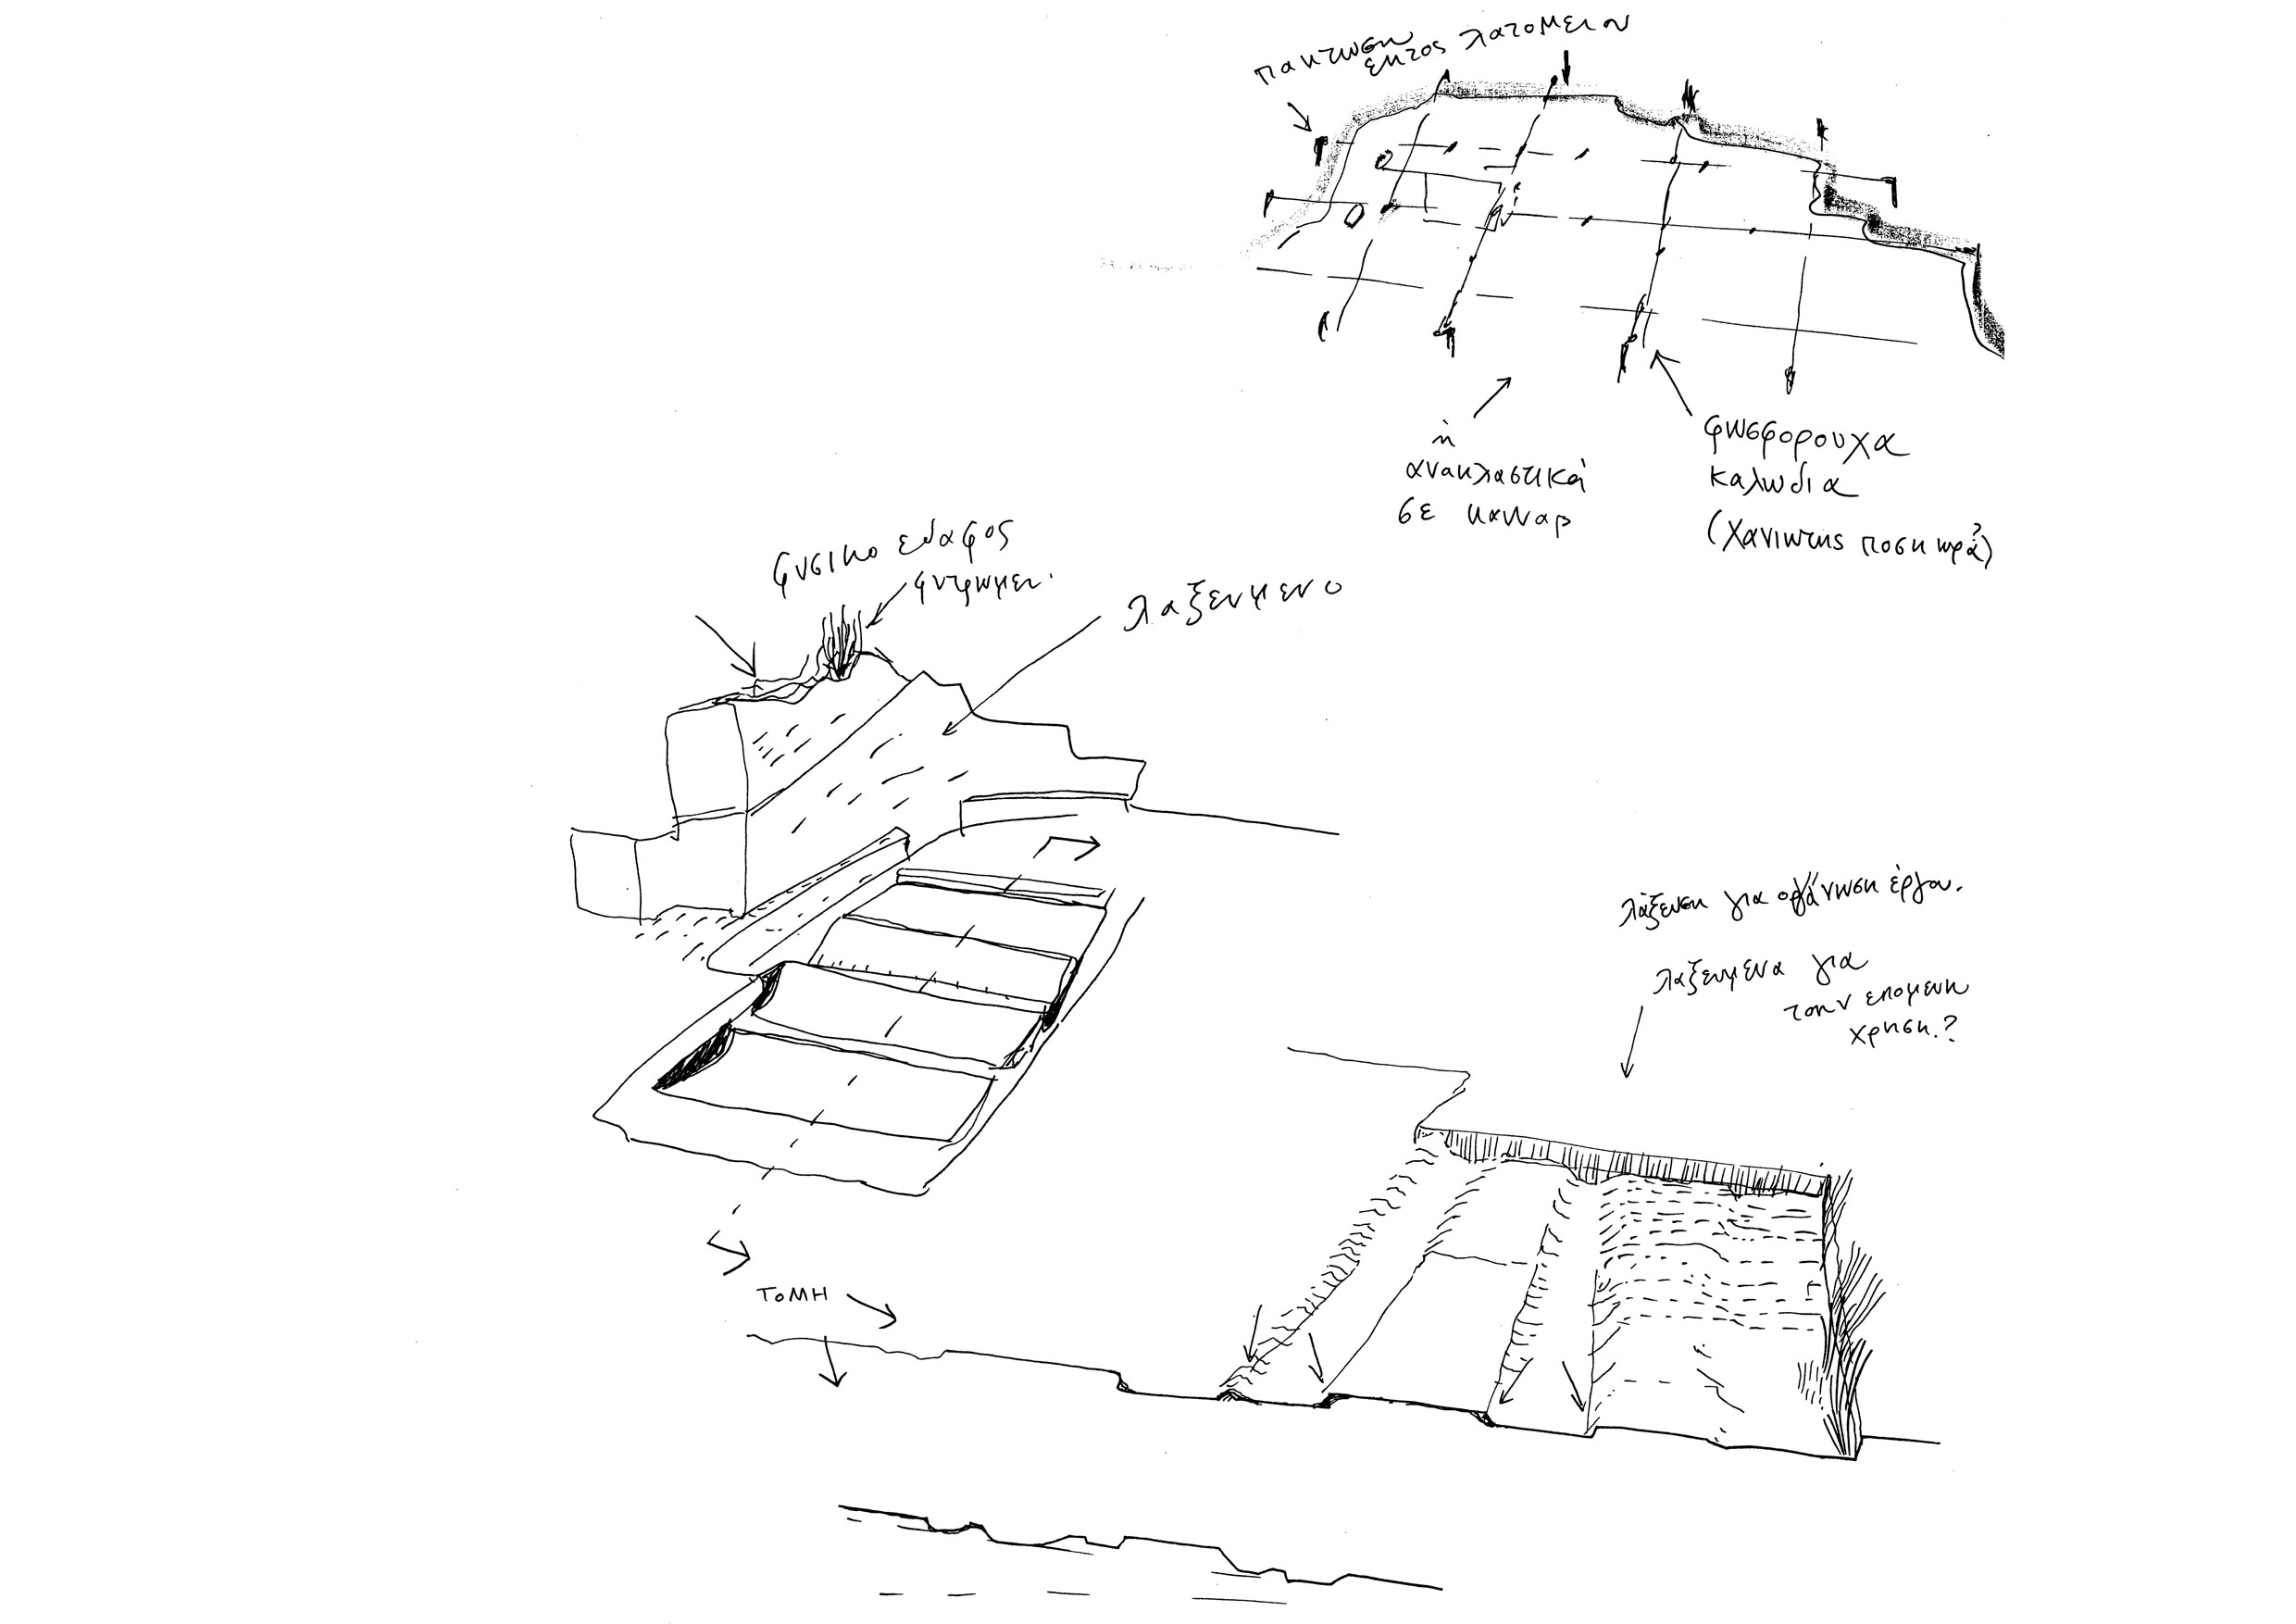 πακτωση
εκτος λατομειου
ή
ανακλαστικά
σε
φωσφορουχα
καλωδια
(Χανιωτης ποση ωρα?)
φυσικο εδαφος
λαξευμενο
λάξευση για οργάνωση έργου.
λαξευμενα για
την επομενη
χρηση.?
ΤΟΜΗ